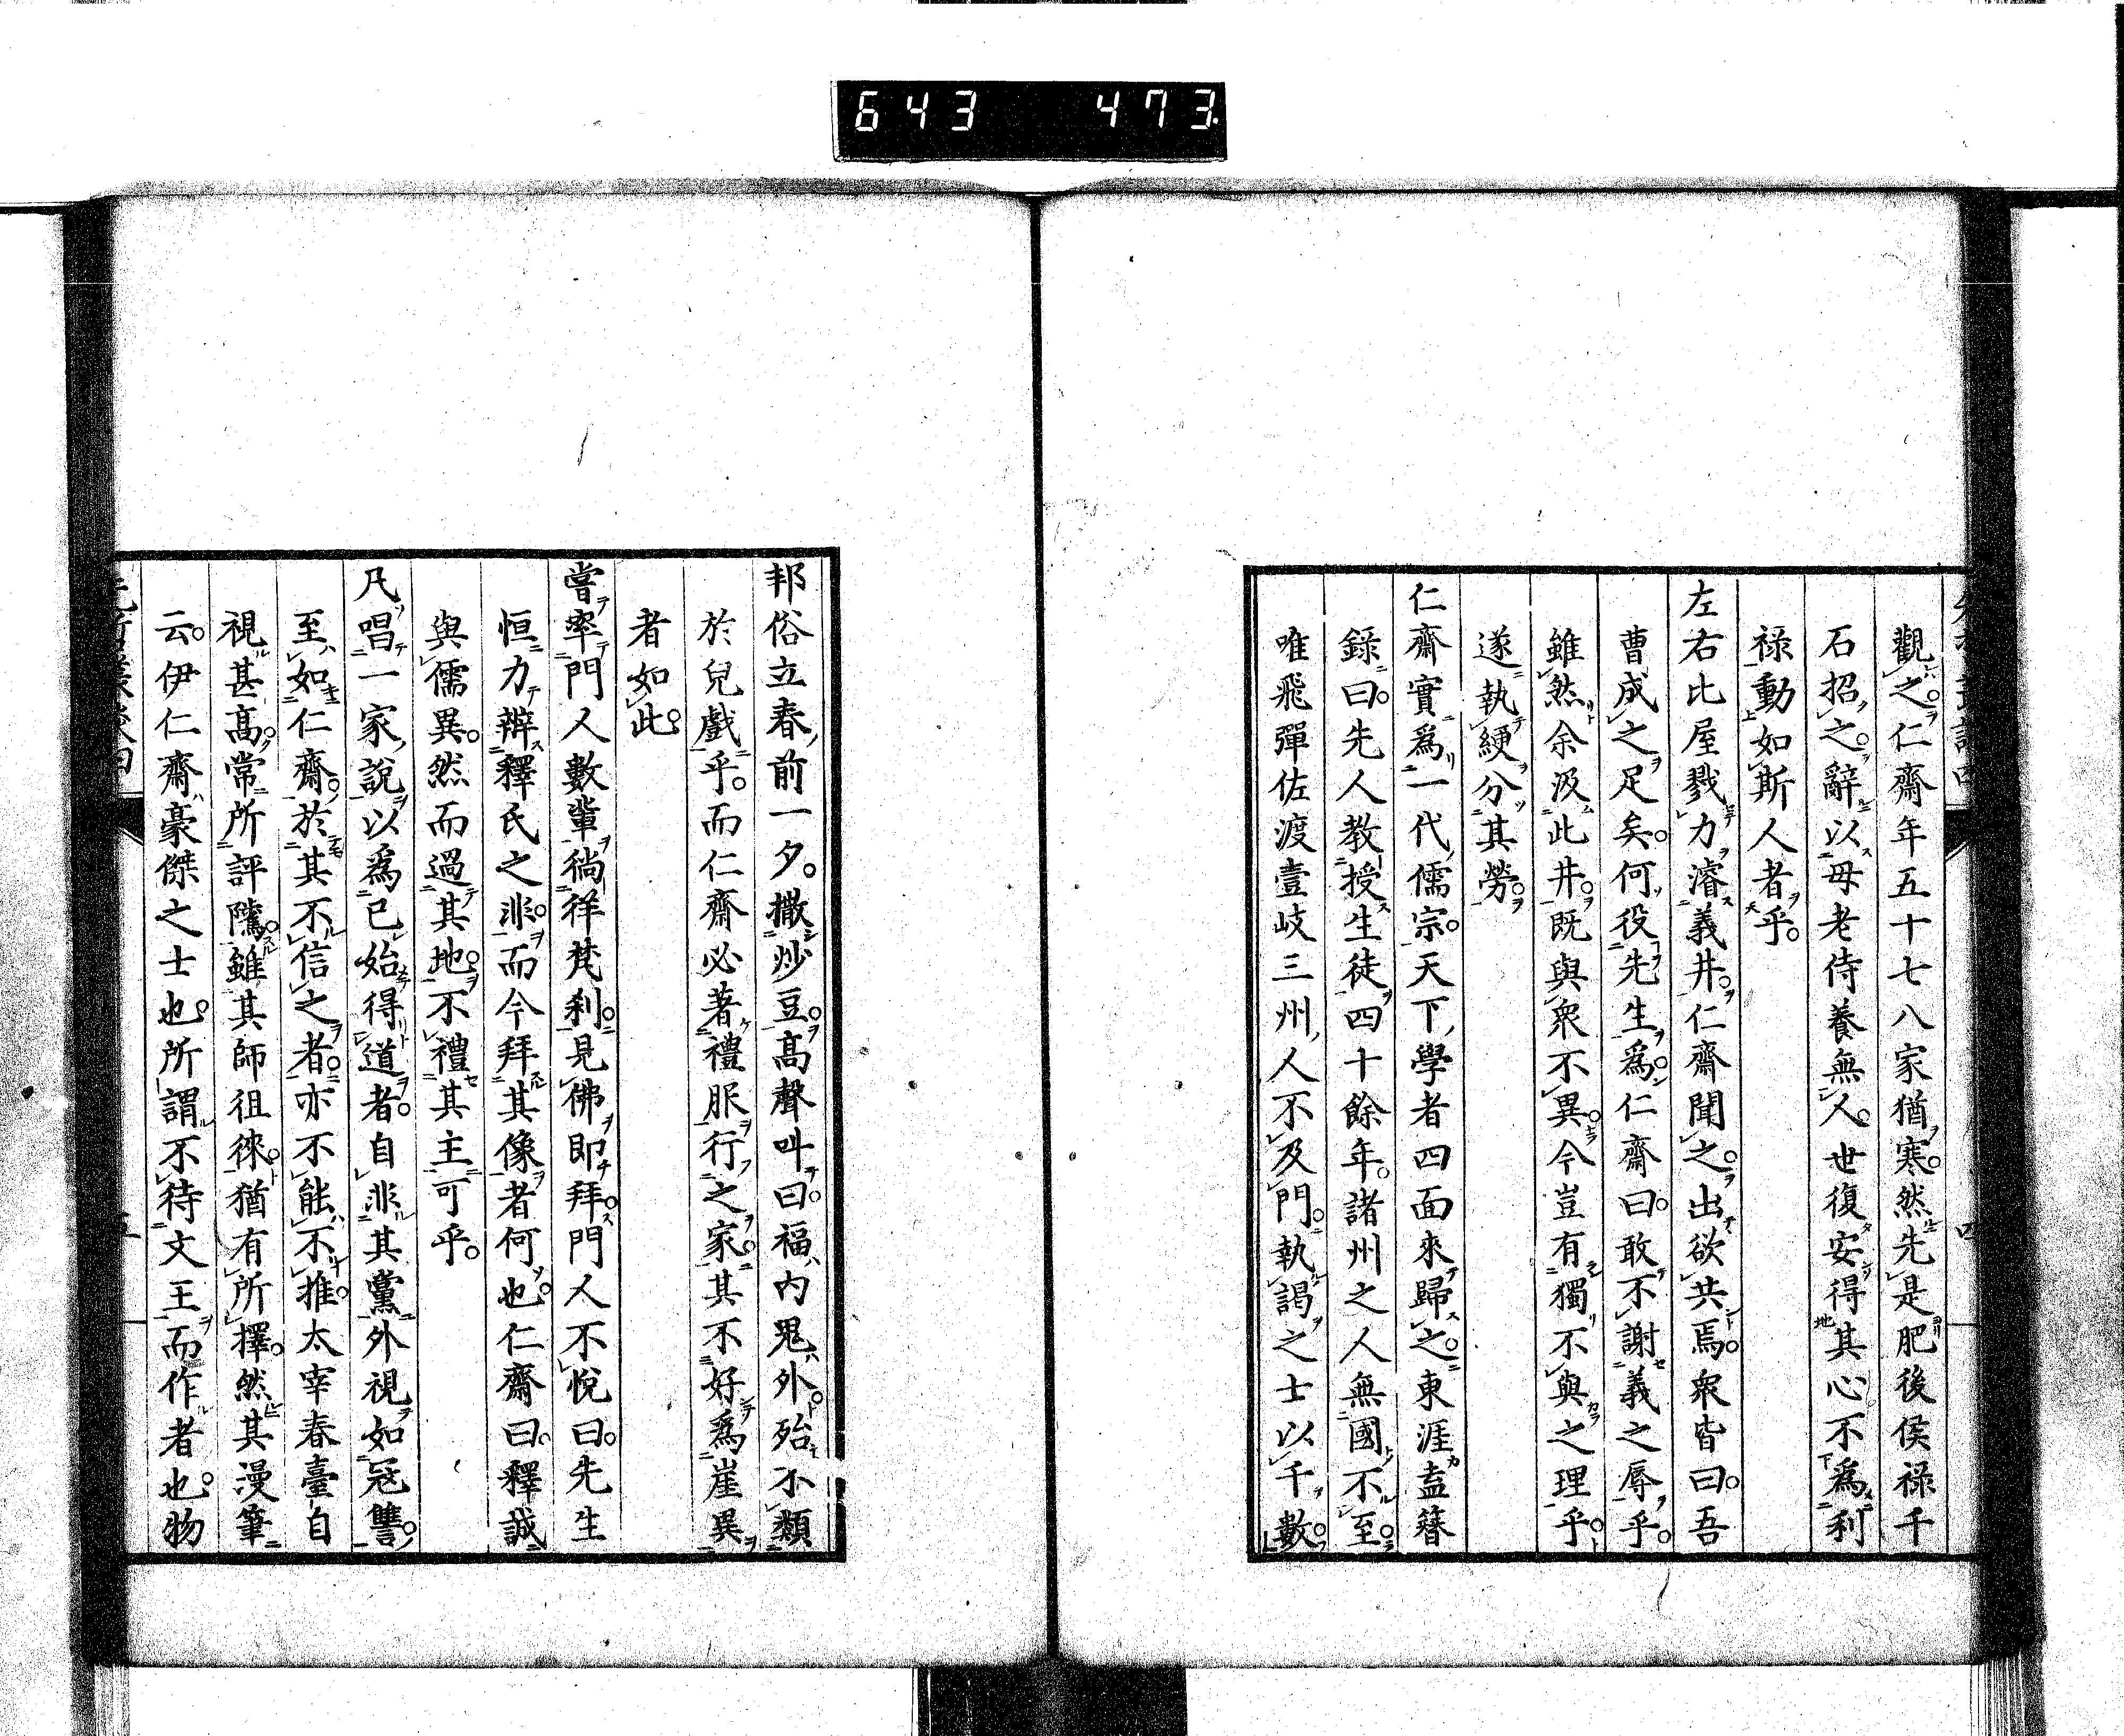 643 473
觀之仁齋年五十七八家猶寒然先是肥後侯禄千
石招之辭以母老侍養無人世復安得其心不爲利
禄動如斯人者乎
左右比屋戮力濬義井仁齋聞之出欲共焉衆皆曰吾
曹成之足矣何役先生爲仁齋曰敢不謝義之辱乎
雖然余汲此井既與衆不異今豈有獨不與之理乎
遂執綆分其勞
仁齋實爲一代儒宗天下學者四面來歸之東涯盍簪
錄曰先人教授生徒四十餘年諸州之人無國不至
唯飛彈佐渡壹岐三州人不及門執謁之士以千數
邦俗立春前一夕撒炒豆高聲叫曰福内鬼外殆不類
於兒戲乎而仁齋必著禮服行之家其不好爲崖異
者如此
嘗率門人數輩徜徉梵刹見佛即拜門人不悅曰先生
恒力辨釋氏之非而今拜其像者何也仁齋曰釋誠
與儒異然而過其地不禮其主可乎
凡唱一家說以爲己始得道者自非其黨外視如寇讐
至如仁齋於其不信之者亦不能不推太宰春臺自
視甚高常所評隲雖其師徂徠猶有所擇然其漫筆
云伊仁齋豪傑之士也所謂不待文王而作者也物